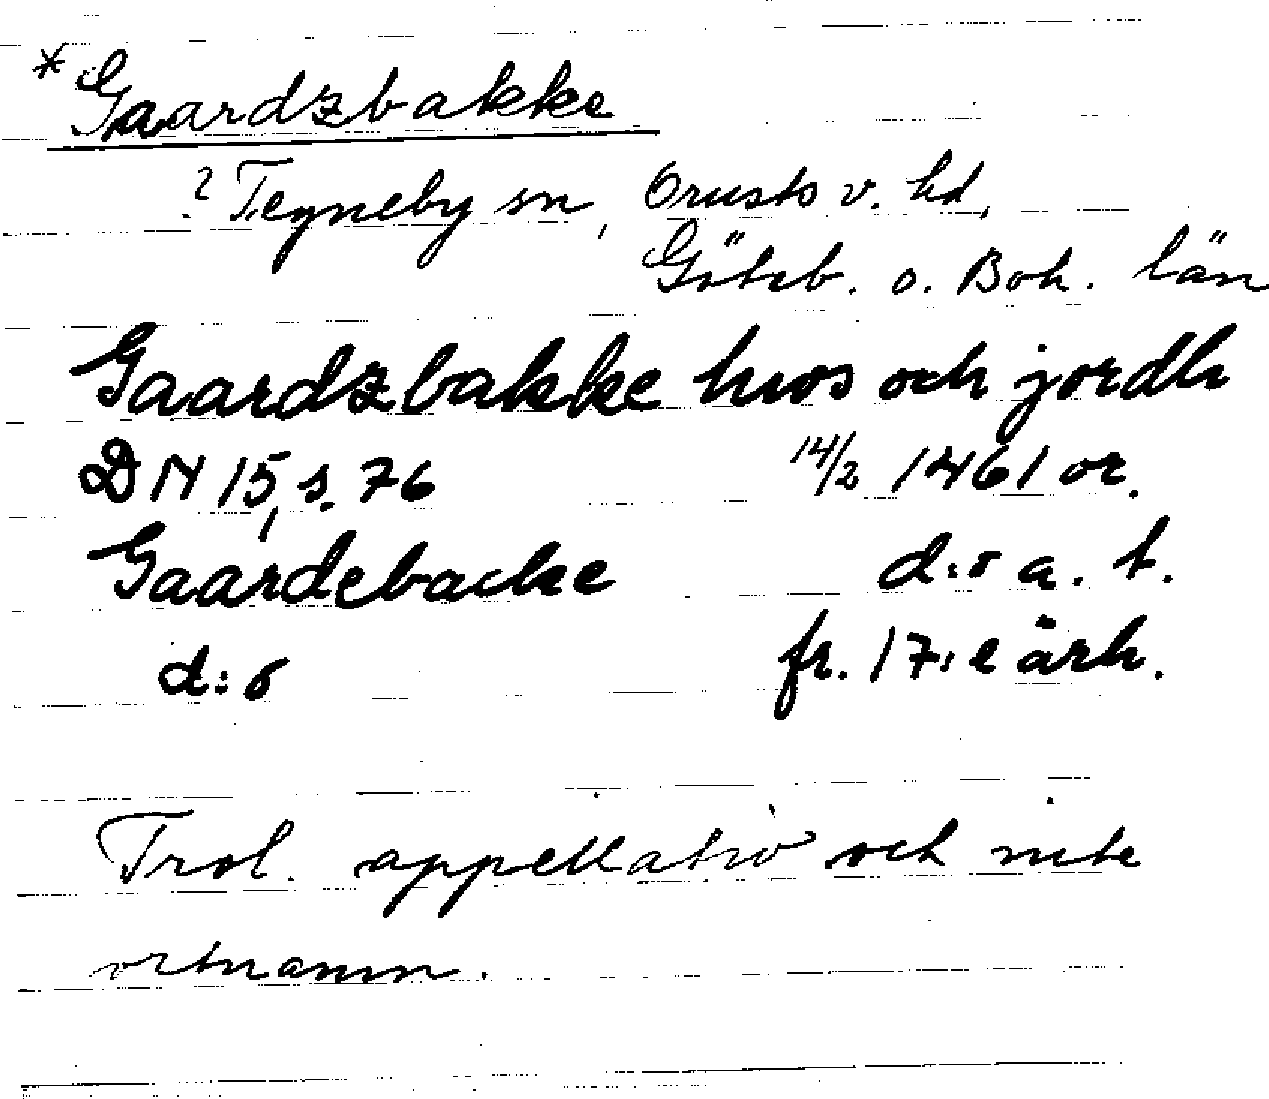 * Gaardzbakke
? Tegneby sn, Orusts v. hd,
Göteb. o. Boh. län
Gaardzbakke hws och jordh
DN 15, s. 76 14/2 1461 or.
Gaardebacke d:o a. t.
d:o fr. 17:e årh.
Trol. appellativ och inte
ortnamn.